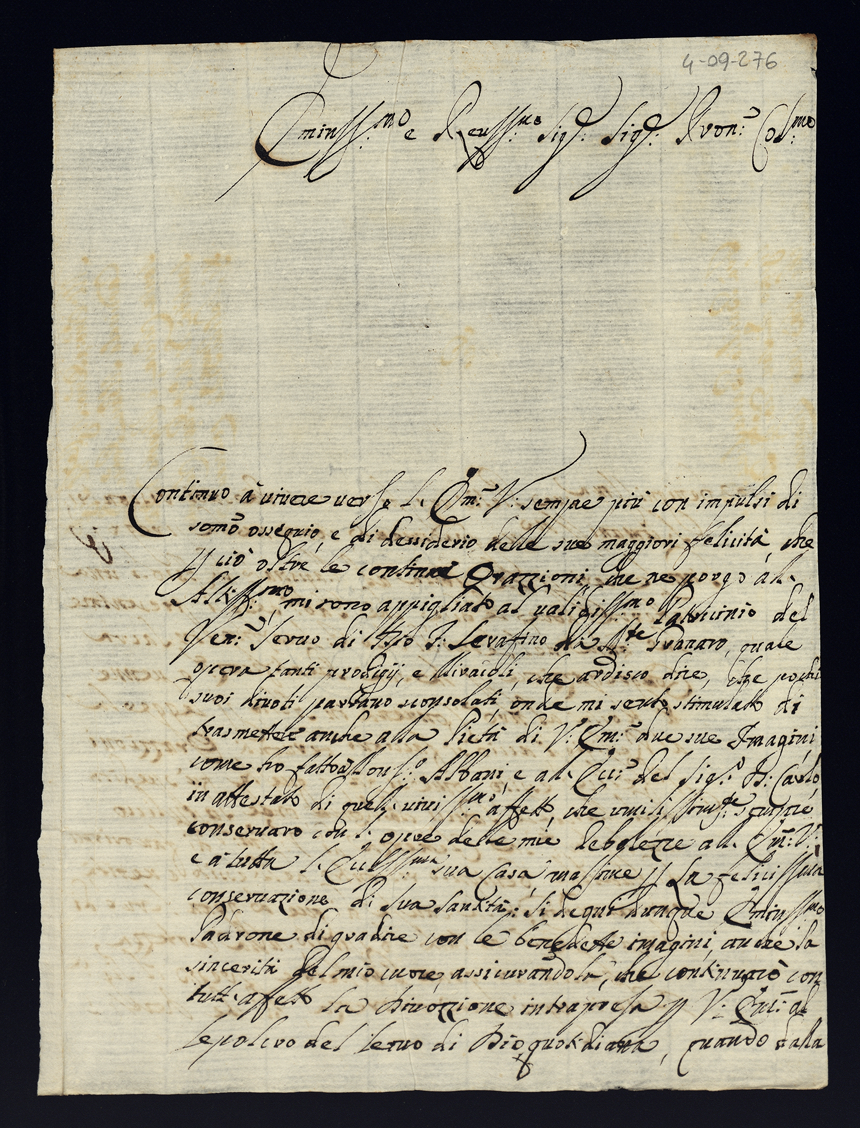 4-09-276
Eminss:mo e Reuss:mo Sig:r Sig:r Pron: Col:mo
Continuo à viuere verso l'Em: V: sempre più con impulsi di
somo ossequio, e di desiderio delle sue maggiori felicità, che
p ciò oltre le continue Orazzioni, che ne porgo al-
Altiss:mo, mi sono appigliato al validiss:mo Patrocinio del
Ven: Seruo di Dio F: Serafino da M:te Granaro, quale
opera tanti prodigij, e Miracoli, che ardisco dire, che pochi
suoi diuoti partano sconsolati, onde mi sento stimulato di
trasmettere anche alla Pietà di V: Em: due sue Imagini
come hò fatto à Mons:r Albani, e al- del Sig:r D: Carlo,
in attestato di quell- viuiss:mo affetto, che umilissimte: sempre
conseruarò con l'opere delle mie debolezze all- Em: V:
e à tutta l- Eccell:ma sua Casa, massime p La felicissima
conseruazione di Sua Santità: Si degni dunque Eminss:mo
Padrone di gradire con le benedette imagini, anche la
sincerità del mio cuore, assicurandola, che continuarò con
tutt- affetto la Diuozzione intrapresa p V: Em: al
sepolcro del seruo di Dio quotidiana, quando dalla